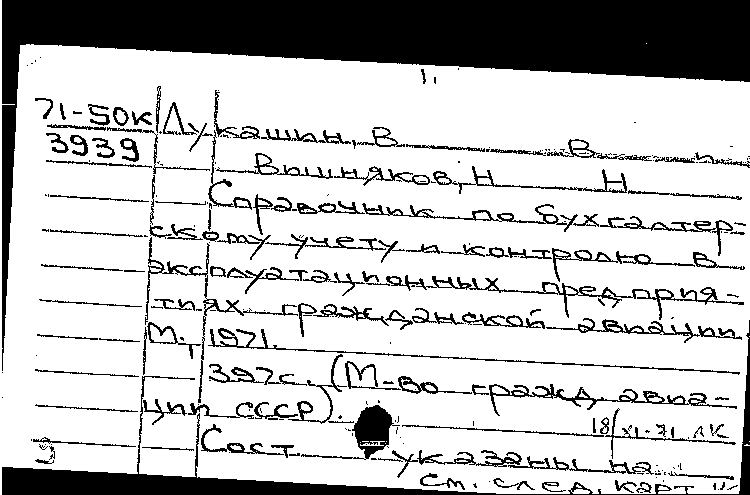 1.
71-50к Лукашин, В В
3939
Вишняков, Н Н
Справочник по бухгалтер-
скому учету и контролю в
эксплуатационных предприя-
тиях гражданской авиации.
М., 1971.
397с. (М-во гражд. авиа-
ции СССР).
18/XI-71 ЛК
Сост указаны на
9 см. след. карт